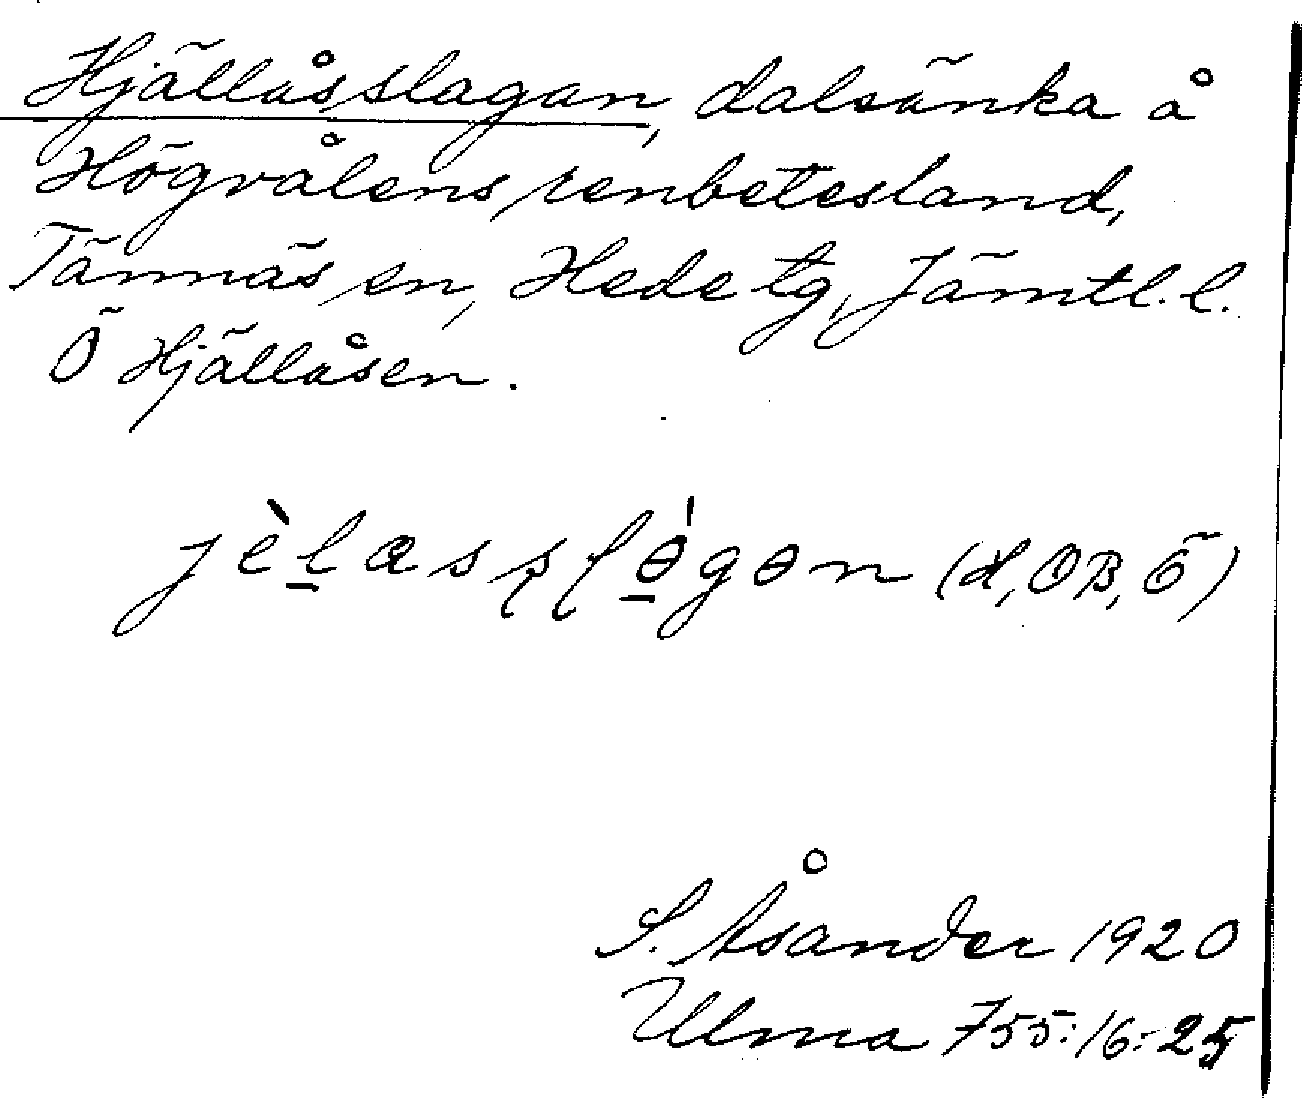 Hjällåsslagan, dalsänka å
Högvålens renbetesland,
Tännäs sn, Hede tg, Jämtl. l.
Ö Hjällåsen.
(H, OB, Ö)
S. Åsander 1920
Ulma 755:16:25